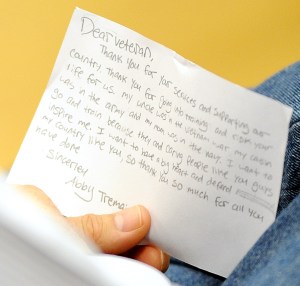 Dear veteran,
Thank you for your services and supporting our
country. Thank you for going into training and risk your
life for us. My uncle was in the Vietnam war my cousin
was in the army and my mom was in the navy. I want to
go and train because they and caring people like you guys
inspire me. I want to have a big heart and defend
my country like you, so thank you so much for all you
have done
Sincerely
Abby